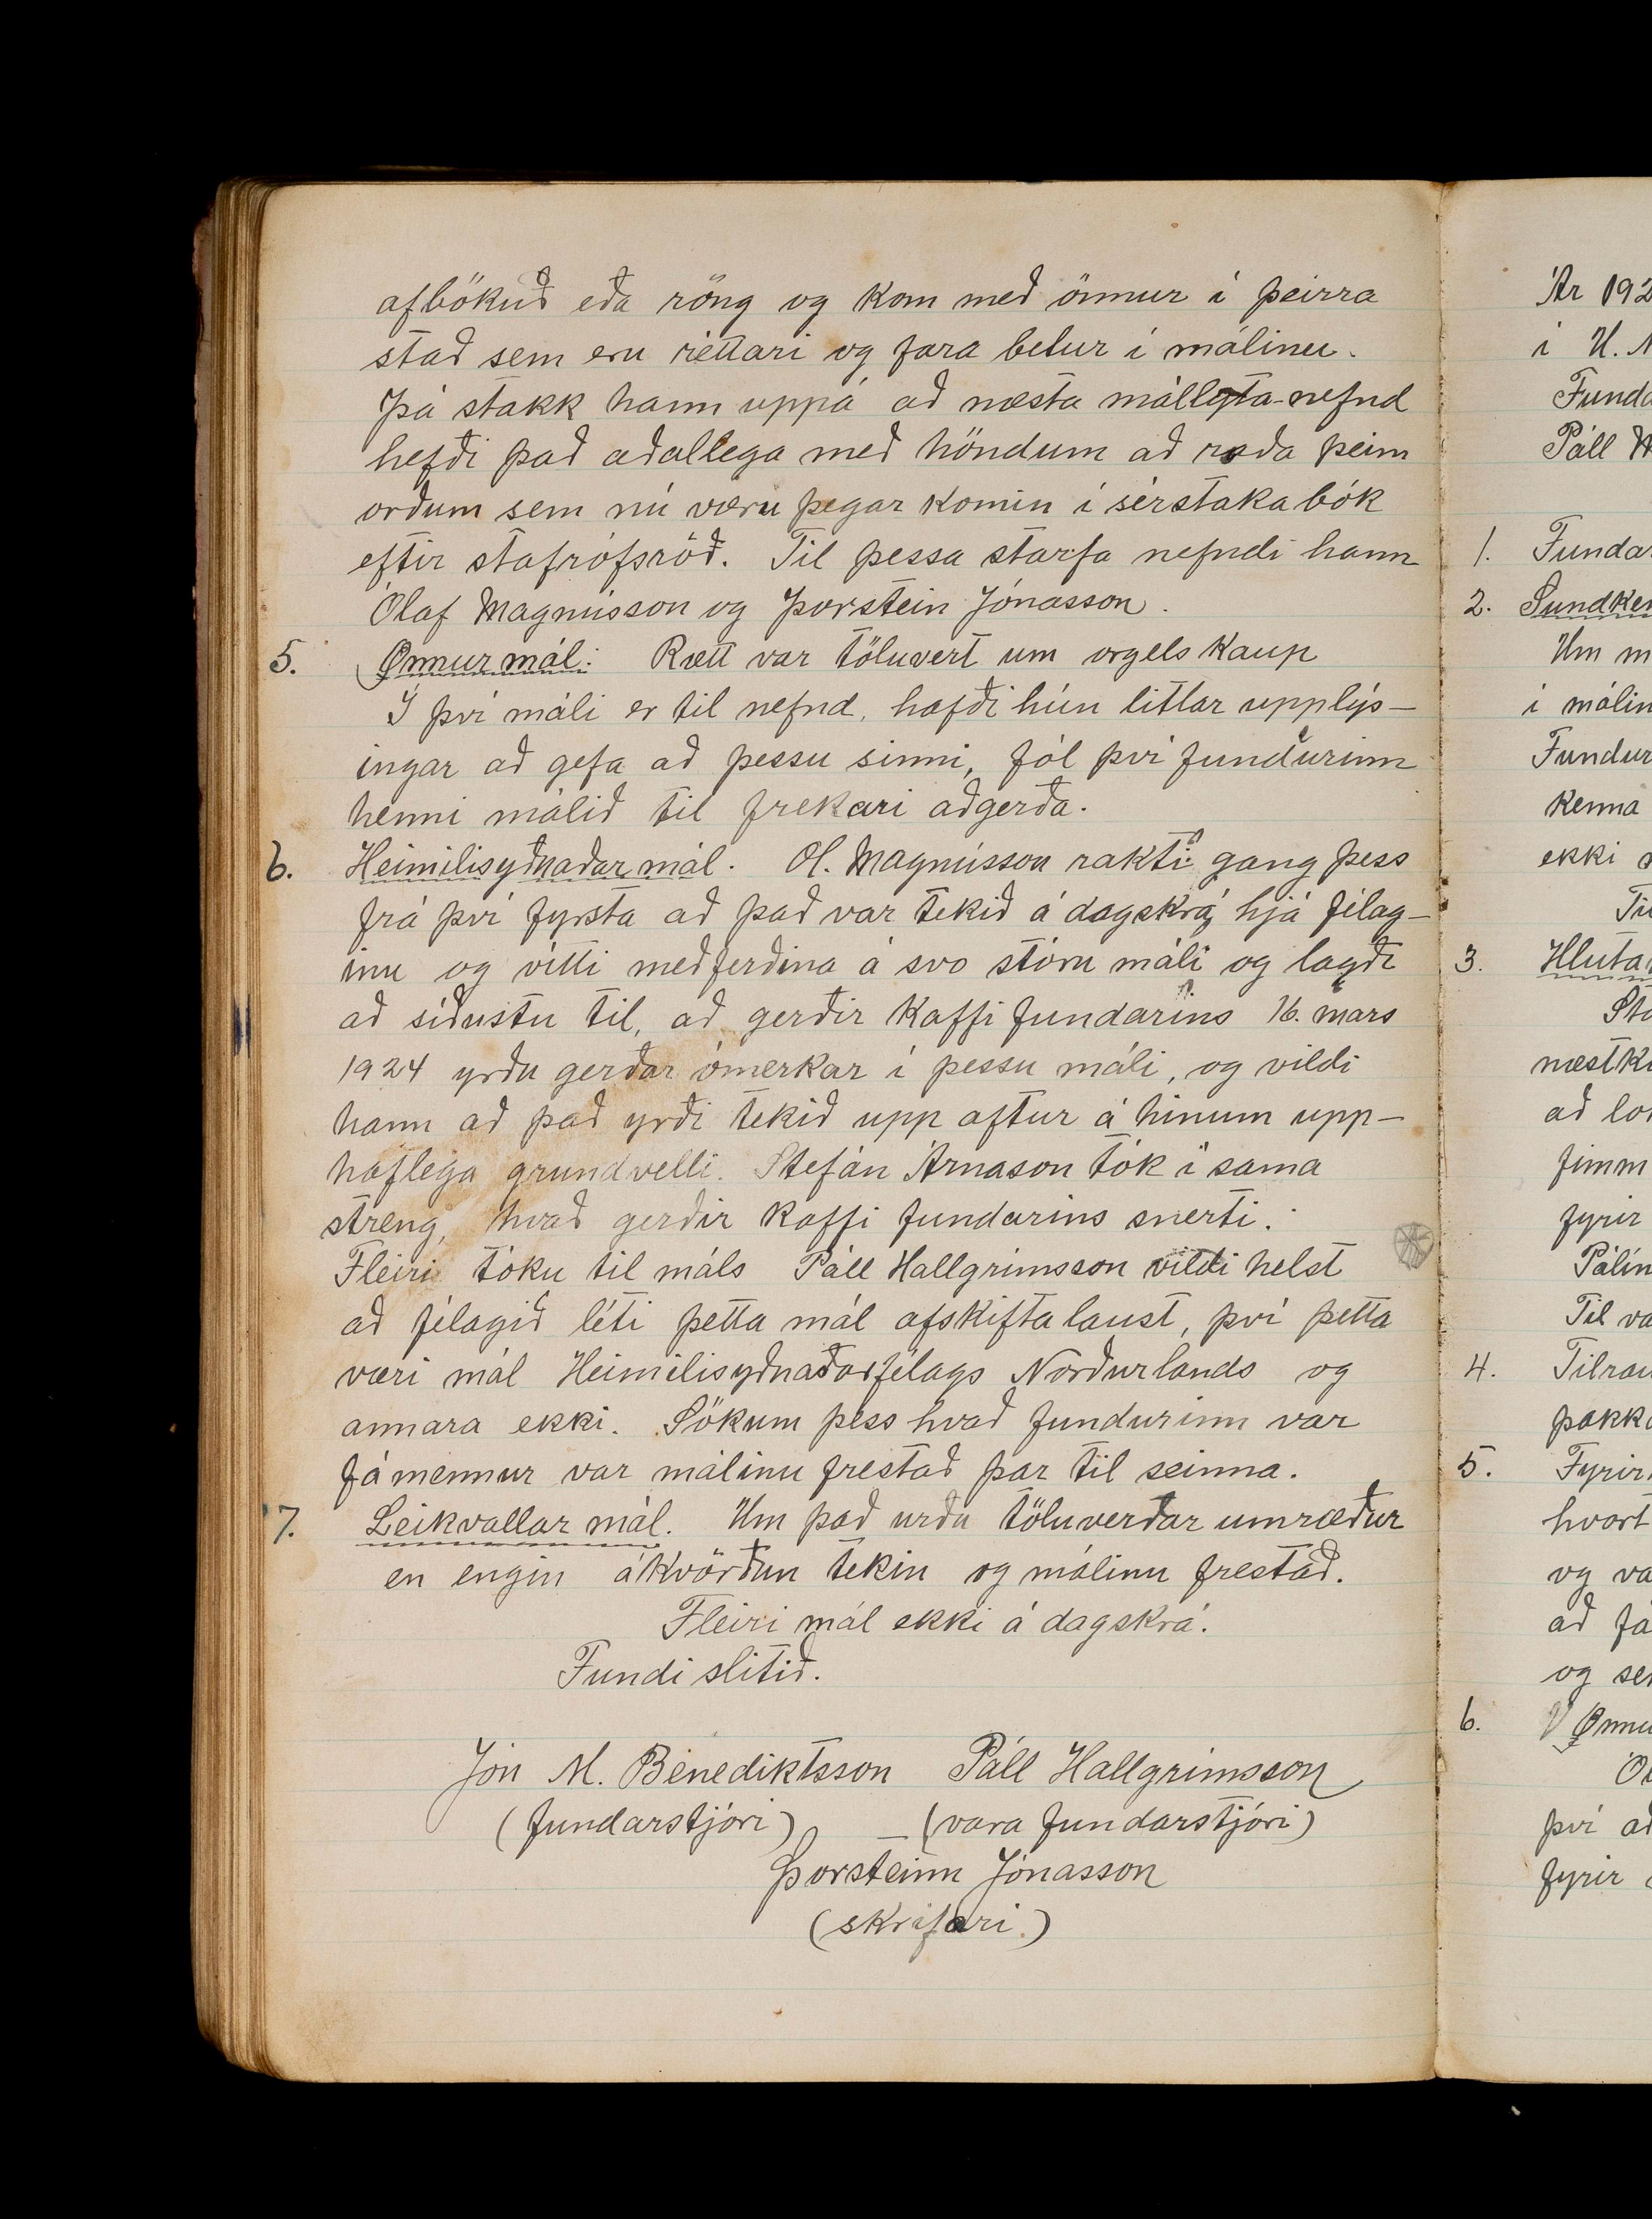 afbökuð eða röng og kom með önnur í þeirra
stað sem eru réttari og fara betur í málinu.
Þá stakk hann uppá að næsta mállýta-nefnd
hefði það aðallega með höndum að raða þeim
orðum sem nú væru þegar komin í sérstaka bók
eftir stafrófsröð. Til þessa starfa nefndi hann
Ólaf Magnússon og Þorstein Jónasson.
5. Önnur mál: Rætt var töluvert um orgels kaup
Í því máli er til nefnd, hafði hún litlar upplýs-
ingar að gefa að þessu sinni, fól því fundurinn
henni málið til frekari aðgerða.
6. Heimilisyðnaðar mál. Ól. Magnússon rakti gang þess
frá því fyrsta að það var tekið á dagskrá, hjá félag-
inu og vítti meðferðina á svo stóru máli og lagði
að síðustu til, að gerðir kaffi fundarins 16. mars
1924 yrðu gerðar ómerkar í þessu máli, og vildi
hann að það yrði tekið upp aftur á hinum upp-
haflega grundvelli. Stefán Árnason tók í sama
streng, hvað gerðir kaffi fundarins snerti.
Fleiri tóku til máls Páll Hallgrímsson vildi helst
að félagið léti þetta mál afskifta laust, því þetta
væri mál Heimilisyðnaðarfélags Norðurlands og
annara ekki. Sökum þess hvað fundurinn var
fámennur var málinu frestað þar til seinna.
7. Leikvallar mál. Um það urðu töluverðar umræður
en engin ákvörðun tekin og málinu frestað.
Fleiri mál ekki á dagskrá.
Fundi slitið.
Jón M. Benediktsson Páll Hallgrímsson
(fundarstjóri) - (vara fundarstjóri)
Þorsteinn Jónasson
(skrifari.)
Ár 192
í U. 
Funda
Páll
1. Fundar
2. Sundken
Um m
í málin
Fundur
kenna
ekki
3. Hluta
næstk
að lo
fimm
fyrir
Pálín
Til va
4. Tilrau
þakk
5. Fyrir
hvort
og va
að fá
og se
6. Önnu
því að
fyrir